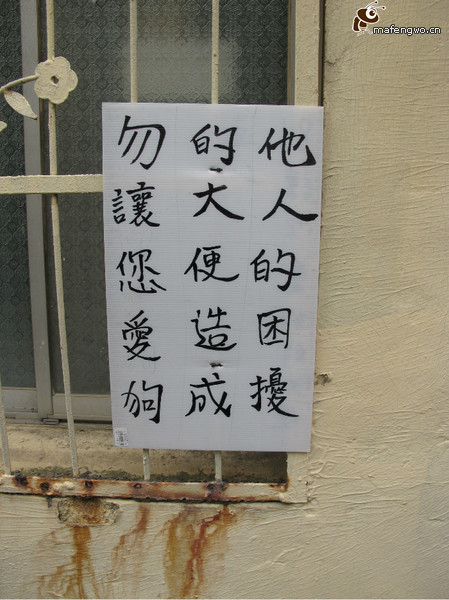 勿讓您愛狗
的大便造成
他人的困擾
mafengwo.cn